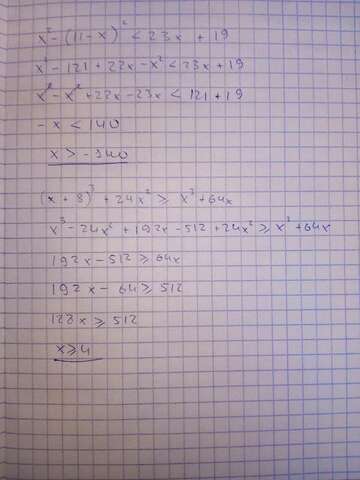 x² - (11 - x)² < 23x + 19
x² - 121 + 22x - x² < 23x + 19
x² - x² + 22x - 23x < 121 + 19
- x < 140
x > - 140
(x + 8)³ + 24x² ≥ x³ + 64x
x³ - 24x² + 192x - 512 + 24x² ≥ x³ + 64x
192x - 512 ≥ 64x
192x - 64 ≥ 512
128x ≥ 512
x ≥ 4